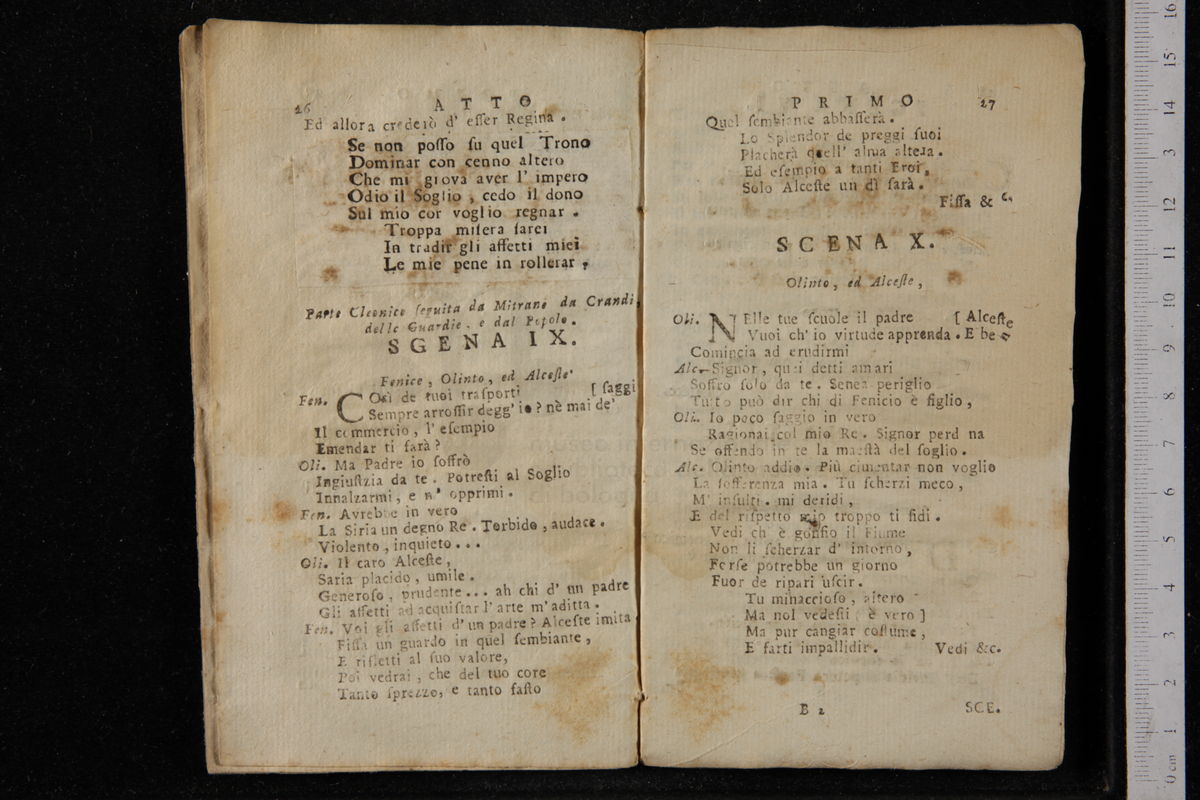 26 ATTO
Ed allora crederò d' esser Regina .
Se non posso su quel Trono
Dominar con cenno altero
Che mi giova aver l' impero
Odio il Soglio , cedo il dono
Sul mio cor voglio regnar .
Troppa misera sarei
In tradir gli affetti miei
Le mie pene in rollerar ,
Parte Cleonice seguita da Mitrane da Grandi,
delle Guardie . e dal Popolo .
SGENA IX.
Fenice , Olinto , ed Alceste
Fen. COsì de tuoi trasporti [ saggi
Sempre arrossir degg' io ? nè mai de'
Il commercio , l' esempio
Emendar ti farà ?
Oli. Ma Padre io soffrò
Ingiustizia da te . Potresti al Soglio
Innalzarmi , e m' opprimi .
Fen. Avrebbe in vero
La Siria un degno Re . Torbido , audace .
Violento , inquieto . . .
Oli. Il caro Alceste ,
Saria placido , umile .
Generoso , prudente . . . ah chi d' un padre
Gli affetti ad acquistar l' arte m' aditta .
Fen. Voi gli affetti d' un padre ? Alceste imita
Fissa un guardo in quel sembiante ,
E rifletti al suo valore ,
Poi vedrai , che del tuo core
Tanto sprezzo , e tanto fasto
PRIMO 27
Quel sembiante abbasserà .
Lo Splendor de preggi suoi
Placherà quell' alma altera .
Ed esempio a tanti Eroi ,
Solo Alceste un dì sarà .
Fissa & c.
SCENA X.
Olinto , ed Alceste ,
Oli. NElle tue scuole il padre [ Alceste
Vuoi ch' io virtude apprenda . E be n
Comincia ad erudirmi
Alc. Signor , quai detti amari
Soffro solo da te . Senea periglio
Tutto può dir chi di Fenicio è figlio ,
Oli. Io poco saggio in vero
Ragionai col mio Re . Signor perd na
Se offendo in te la maestà del soglio .
Alc. Olinto addio . Più cimentar non voglio
La sofferenza mia . Tu scherzi meco ,
M' insulti . mi deridi ,
E del rispetto mio troppo ti fidi .
Vedi ch' è gonfio il Fiume
Non li scherzar d' intorno ,
Forse potrebbe un giorno
Fuor de ripari uscir .
Tu minaccioso , altero
Ma nol vedesti ( è vero ]
Ma pur cangiar costume ,
E farti impallidir . Vedi &c.
B 2 SCE.